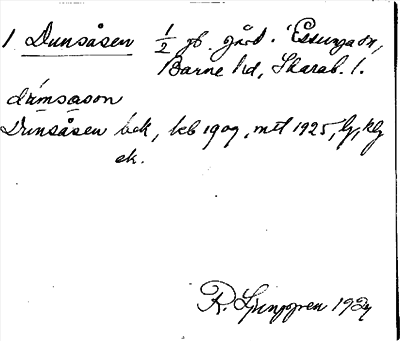 1 Dunsåsen 1/2 gb. gård. Essunga sn,
Barne hd, Skarab. l.
dúnsåsən
Dunsåsen bok, kb 1909, mtl 1925, lj, klg
ek.
R. Ljunggren 1924